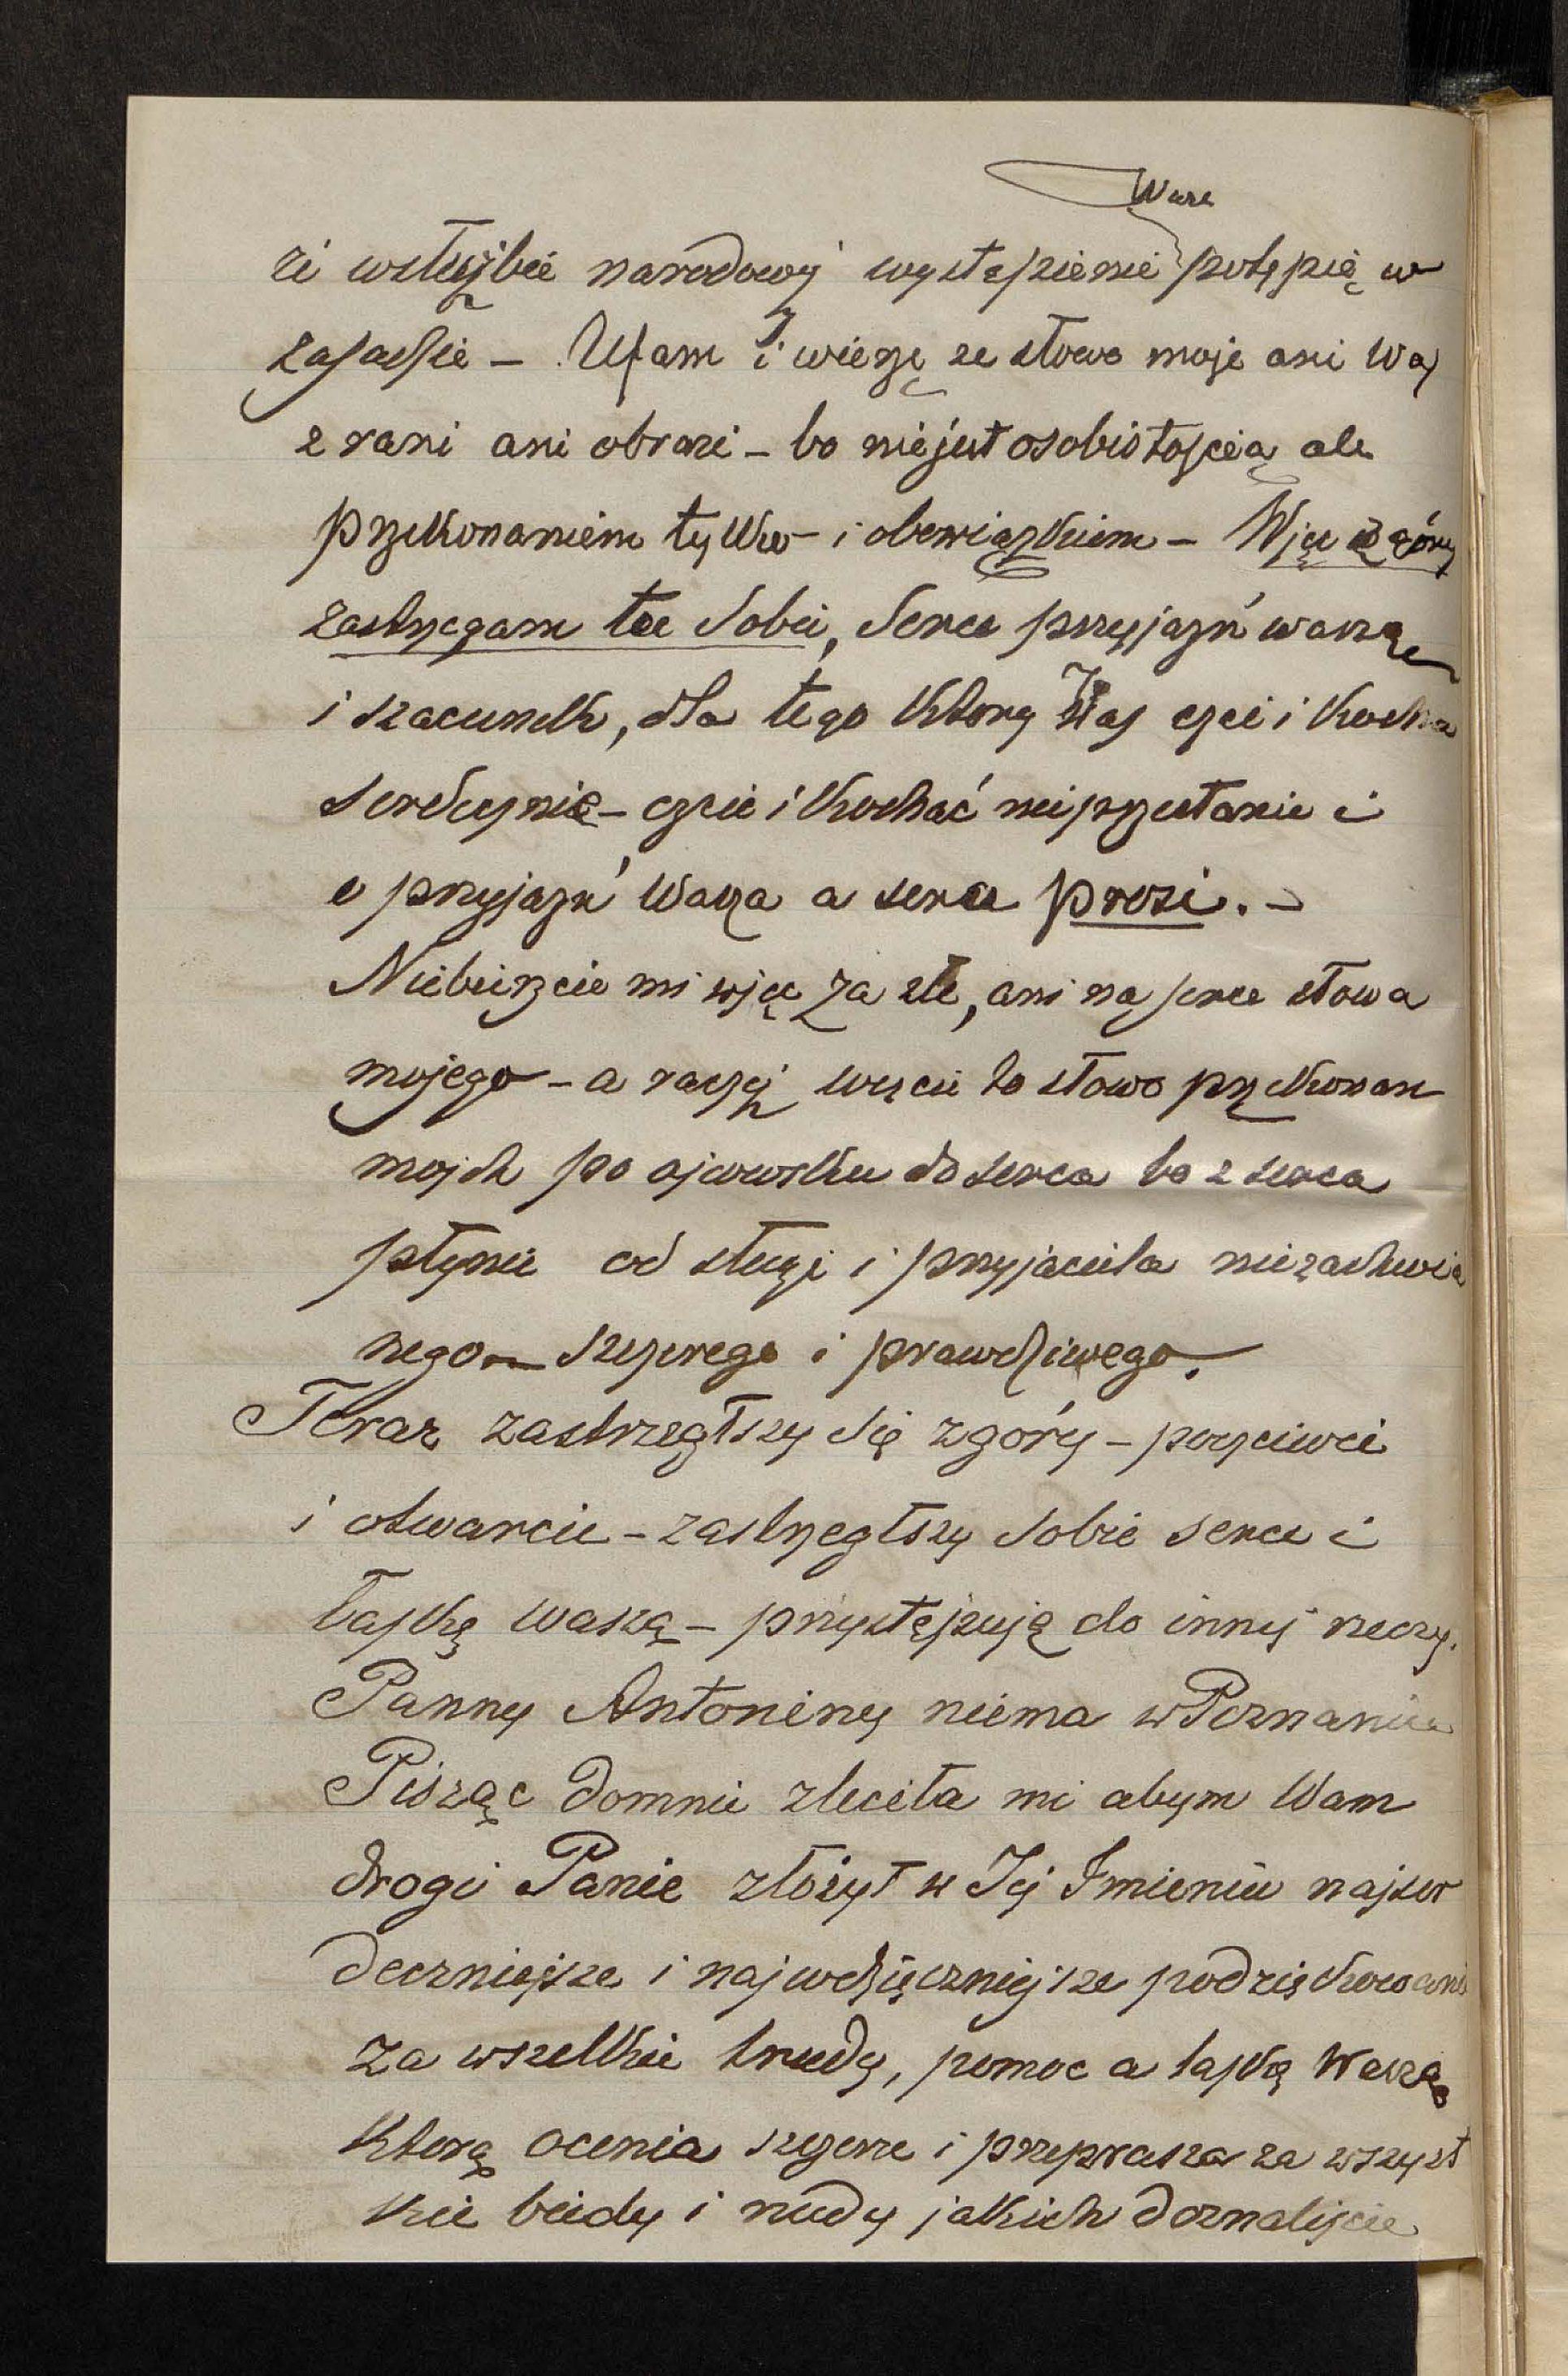 Wasze
zi wsłużbie narodowéj wystąpienie potępię w
zasadzie – Ufam i wierzę ze słowo moje ani Was
zrani ani obrazi – bo niejest osobistością ale
przekonaniem tylko – i obowiązkiem – Więc z góry
zastrzegam tu sobie, Serce przyjaźń waszą
i szacunek, dla tego ktory Was czci i kocha
serdecznie – czcić i kochać nieprzestanie i
o przyjaźń Wasza a serce prosi. –
Niebierzcie mi więc za złe, ani na serce słowa
mojego – a raczéj weźcie to słowo przekonan
mojch po ojcowsku do serca bo z serca
płynie od sługi i przyjaciela niezachwia
nego – szczerego i prawdziwego.
Teraz zastrzegłszy się zgóry – poczciwie
i otwarcie – zastrzegłszy sobie serce i
łaskę waszą – przystępuję do innéj rzeczy.
Panny Antoniny niema w Poznaniu
Pisząc domnie zleciła mi abym Wam
drogi Panie złożył w Jéj Imieniu najser
deczniejsze i najwdzięczniejsze podziękowani
za wszelkie trudy, pomoc a łaskę Waszą
Którą ocenia szczerze i przeprasza za wszyst
kie biedy i nudy jakich doznaliście